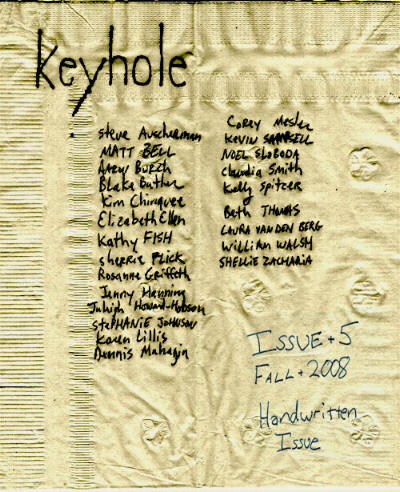 Keyhole
Steve Auscherman
MATT BELL
Aaron BURCH
Blake Butler
Kim Chinquee
Elizabeth Ellen
Kathy FISH
Sherrie FLICK
Rosanne Griffeth
Jenny Henning
STEPHANIE JOHNSON
Karen Lillis
Dennis Mahagin
Corey Mesler
KEVIN SAMPSELL
NOEL SLOBODA
Claudia Smith
Kelly Spitzer
Beth THOMAS
LAURA VANDEN BERG
WILLIAM WALSH
SHELLIE ZACHARIA
ISSUE + 5
FALL + 2008
Handwritten
Issue